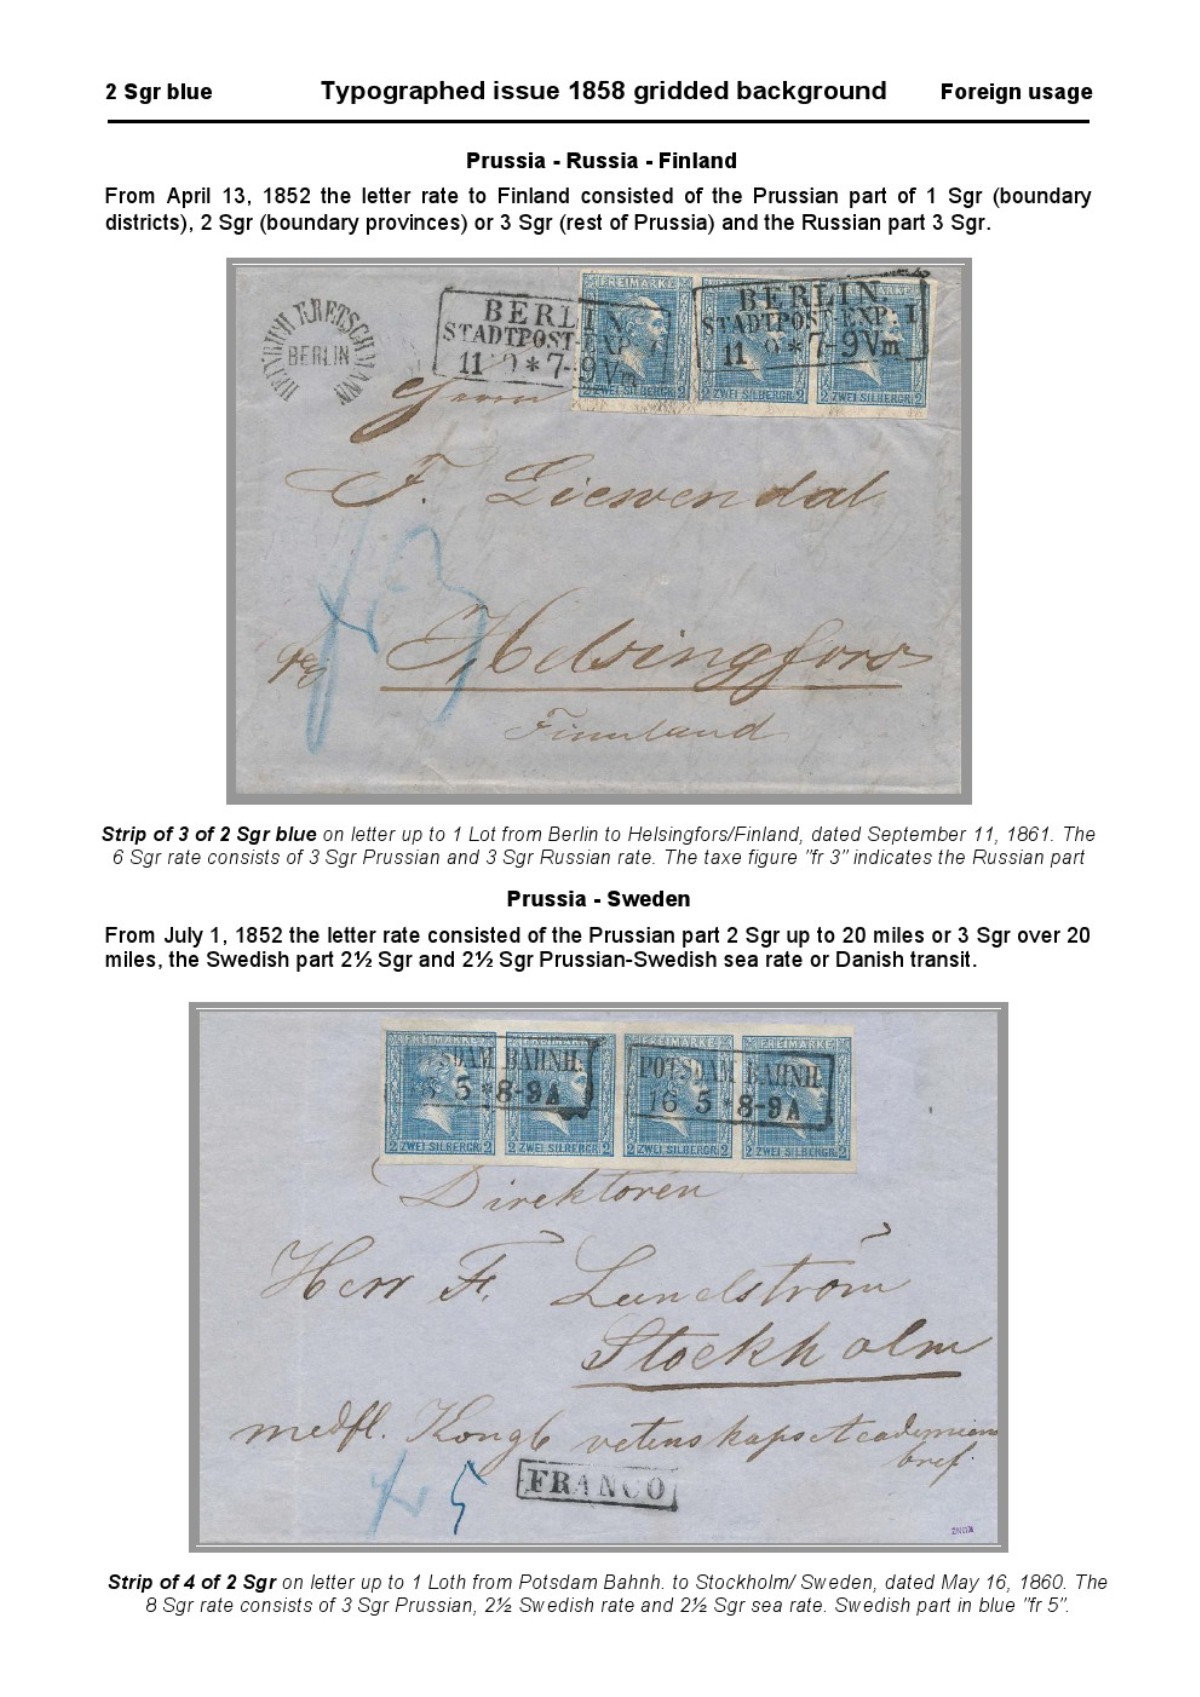 2 Sgr blue Typographed issue 1858 gridded background Foreign usage
Prussia - Russia - Finland
From April 13, 1852 the letter rate to Finland consisted of the Prussian part of 1 Sgr (boundary
districts), 2 Sgr (boundary provinces) or 3 Sgr (rest of Prussia) and the Russian part 3 Sgr.
HEINRICH KRETSCHMANN
BERLIN
BERLIN.
STADTPOST-EXP.
11 9 * 7-9 Vm
BERLIN.
STADTPOST-EXP: I
11 9 * 7-9 Vm
FREIMARKE FREIMARKE FREIMARKE
2 ZWEI SILBERGR. 2 2 ZWEI SILBERGR. 2 2 ZWEI SILBERGR. 2
Herrn
F. Liewendal
fr 3
Helsingfors
Finnland
Strip of 3 of 2 Sgr blue on letter up to 1 Lot from Berlin to Helsingfors/Finland, dated September 11, 1861. The
6 Sgr rate consists of 3 Sgr Prussian and 3 Sgr Russian rate. The taxe figure "fr 3" indicates the Russian part
Prussia - Sweden
From July 1, 1852 the letter rate consisted of the Prussian part 2 Sgr up to 20 miles or 3 Sgr over 20
miles, the Swedish part 2½ Sgr and 2½ Sgr Prussian-Swedish sea rate or Danish transit.
FREIMARKE FREIMARKE FREIMARKE FREIMARKE
SDAM BAHNH.
5 * 8-9 A
POTSDAM BAHNH.
16 5 * 8-9 A
2 ZWEI SILBERGR. 2 2 ZWEI SILBERGR. 2 2 ZWEI SILBERGR. 2 2 ZWEI SILBERGR. 2
Direktoren
Herr F. Lundström
Stockholm
medfl. Kongl vetenskaps Academiens
bref.
fr 5
FRANCO
Strip of 4 of 2 Sgr on letter up to 1 Loth from Potsdam Bahnh. to Stockholm/ Sweden, dated May 16, 1860. The
8 Sgr rate consists of 3 Sgr Prussian, 2½ Swedish rate and 2½ Sgr sea rate. Swedish part in blue "fr 5".